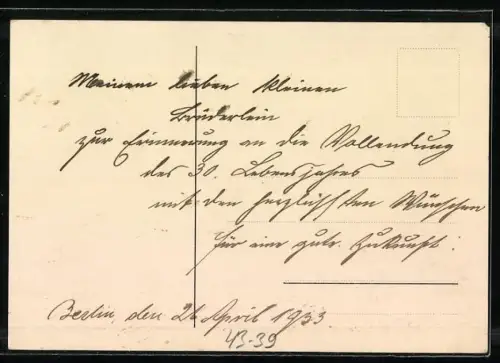 Meinem lieben kleinen
Brüderlein
zur Erinnerung an die Vollendung
des 30. Lebensjahres
mit den herzlichsten Wünschen
für eine gute Zukunft!
Berlin, den 26 April 1933.
43-39